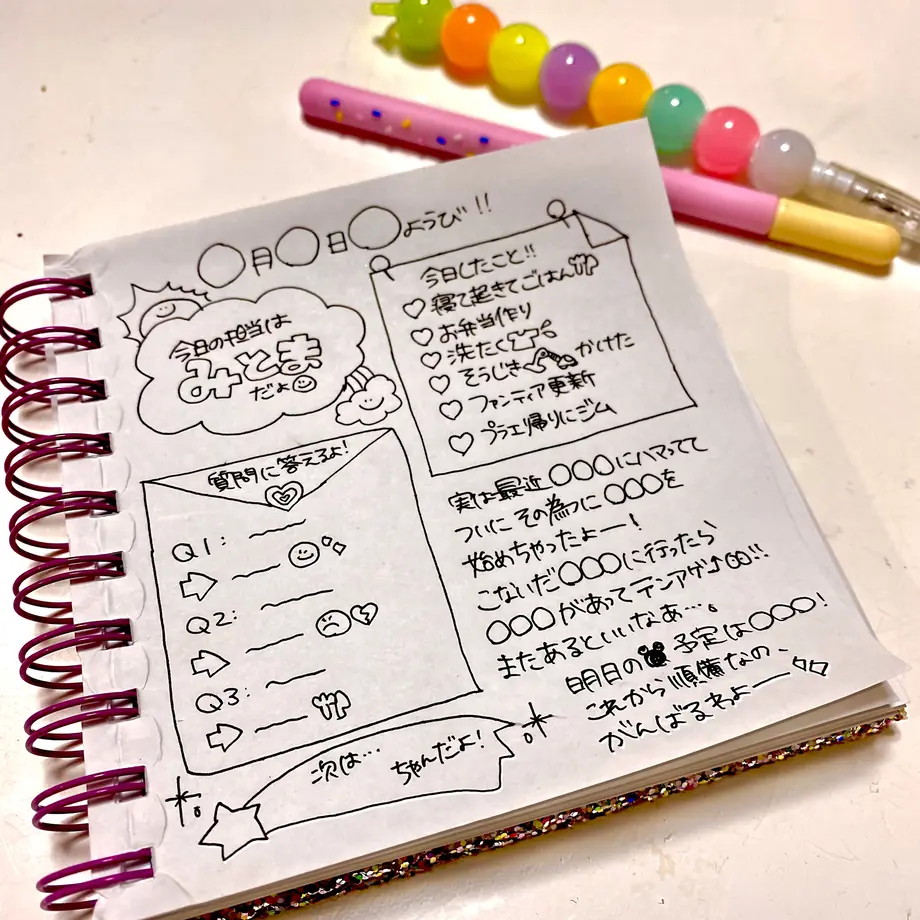 〇月〇日〇ようび!!
今日の担当は
みとま
だよ
今日したこと!!
♡寝て起きてごはん
♡お弁当作り
♡洗たく
♡そうじき かけた
♡ファンティア更新
♡プラエ帰りにジム
質問に答えるよ!
Q1:
⇨
Q2:
⇨
Q3:
⇨
実は最近〇〇〇にハマってて
ついにその為に〇〇〇を
始めちゃったよー!
こないだ〇〇〇に行ったら
〇〇〇があってテンアゲ♪!!
またあるといいなぁ…。
明日の 予定は〇〇〇!
これから準備なの、
がんばるわよー
次は…
ちゃんだよ!